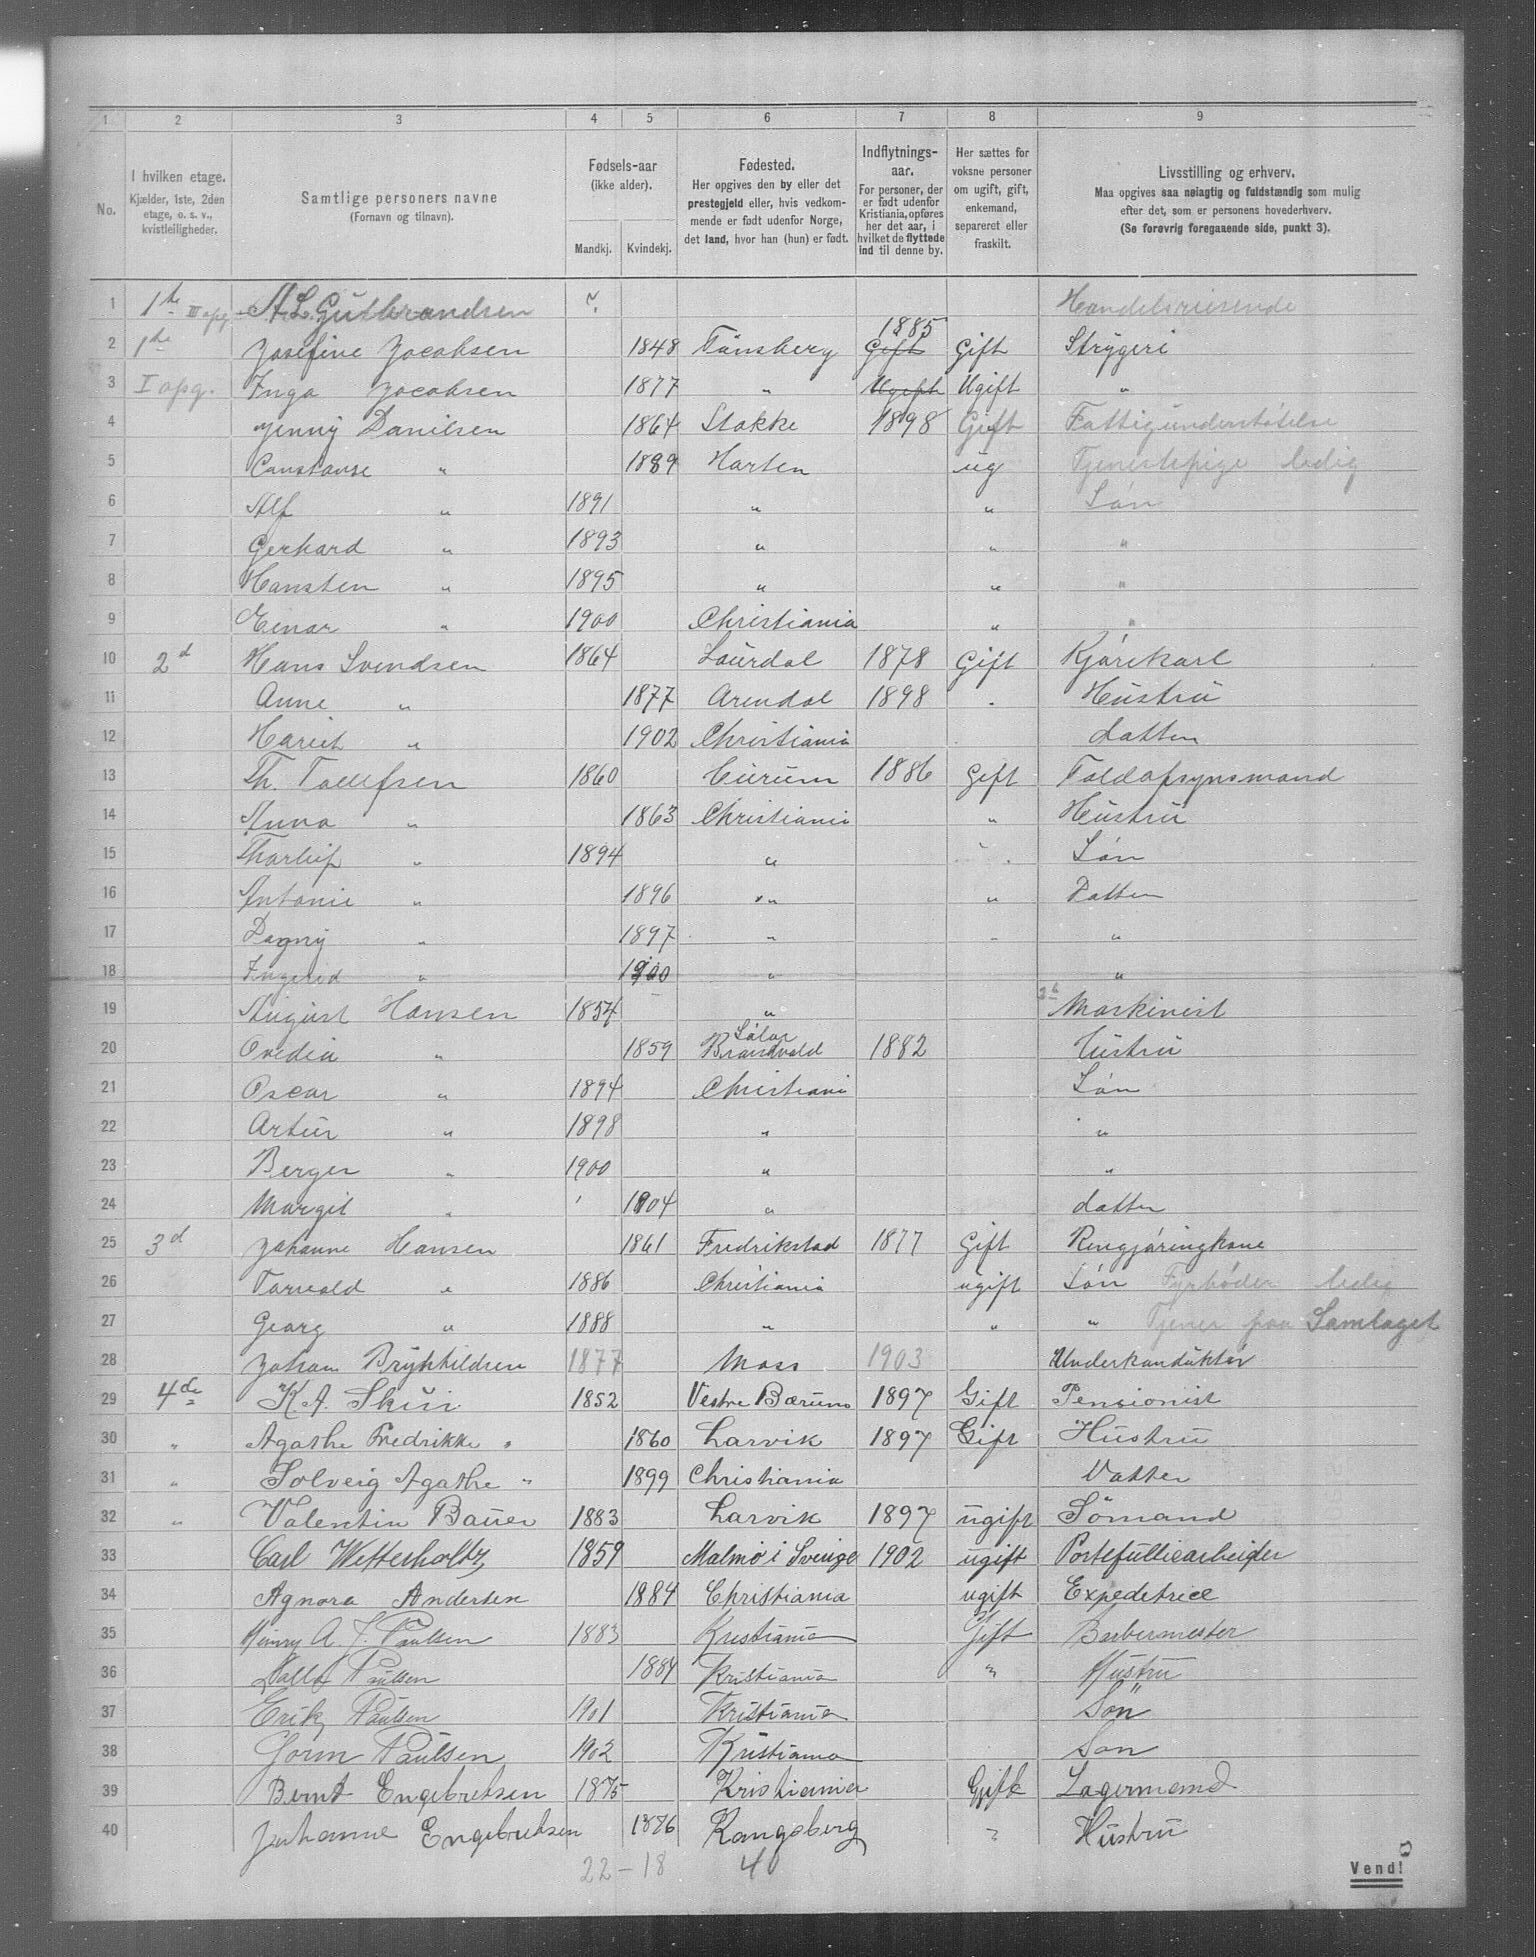 1 2 3 4 5 6 7 8 9
No.
I hvilken etage.
Kjælder, 1ste, 2den
etage, o. s. v.,
kvistleiligheder.
Samtlige personers navne
(Fornavn og tilnavn).
Fødsels-aar
(ikke alder).
Mandkj. Kvindekj.
Fødested.
Her opgives den by eller det
prestegjeld eller, hvis vedkom-
mende er født udenfor Norge,
det land, hvor han (hun) er født.
Indflytnings-
aar.
For personer, der
er født udenfor
Kristiania, opføres
her det aar, i
hvilket de flyttede
ind til denne by.
Her sættes for
voksne personer
om ugift, gift,
enkemand,
separeret eller
fraskilt.
Livsstilling og erhverv.
Maa opgives saa nøiagtig og fuldstændig som mulig
efter det, som er personens hovederhverv.
(Se forøvrig foregaaende side, punkt 3).
1 1te III opg A L Gutbrandsen Handelsreisende
1885
2 1te Josefine Jacobsen 1848 Tönsberg Gift Gift Strygeri
3 I opg. Inga Jacobsen 1877 " Ugift Ugift "
4 Jenny Danilsen 1864 Stokke 1898 Gift Fattigunderstötelse
5 Constanse " 1889 Horten ug Tjenestepige ledig
6 Alf " 1891 " " Sön
7 Gerhard " 1893 " " "
8 Hansten " 1895 " " "
9 Einar " 1900 Christiania " "
10 2d Hans Svendsen 1864 Laurdal 1878 Gift Kjörekarl
11 Anne " 1877 Arendal 1898 " Hüstrü
12 " 1902 Christiania datter
13 Th. Tollefsen 1860 1886 Gift Toldopsynsmand
14 Anna " 1863 Christiania " Hüstrü
15 Thorleif " 1894 " " Sön
16 Antonie " 1896 " " Datter
17 Dagny " 1897 " " "
18 Ingerid " 1900 " "
19 August Hansen 1854 " Maskinist
Solør
20 Ovedia " 1859 Brandvold 1882 Hüstrü
21 Oscar " 1894 Christiania Sön
22 Artür " 1898 " "
23 Berger " 1900 " "
24 Margit " 1904 " datter
25 3d Johanne Hansen 1861 Fredrikstad 1877 Gift Rengjöringkone
26 Torvald " 1886 Christiania ugift Sön Fyrböder ledig
27 Georg " 1888 " " " Tjener paa Samlaget
28 Johan Brynhildsen 1877 Moss 1903 Underkondüktör
29 4de K. A. Sküi 1852 Vestre Bærüm 1897 Gift Pensionist
30 " Agathe Fredrikke " 1860 Larvik 1897 Gift Hüstrü
31 " Solveig Agathe " 1899 Christiania Datter
32 " Valentin Baüer 1883 Larvik 1897 ugift Sömand
33 Carl Wetterholtz 1859 Malmø i Sverige 1902 ugift Portefülliearbeider
34 Agnora Andersen 1884 Christiania ugift Expedetrice
35 Henry A. J. Paulsen 1883 Kristiania Gift Barbermester
36 Paülsen 1884 Kristiania " Hüstrü
37 Erik Paülsen 1901 Kristiania Sön
38 Gorm Paülsen 1902 Kristiania Son
39 Bernt Engebretsen 1875 Kristiania Gift Lagermand
40 Johanne Engebretsen 1876 Kongsberg " Hüstrü
22-18 40
Vend!